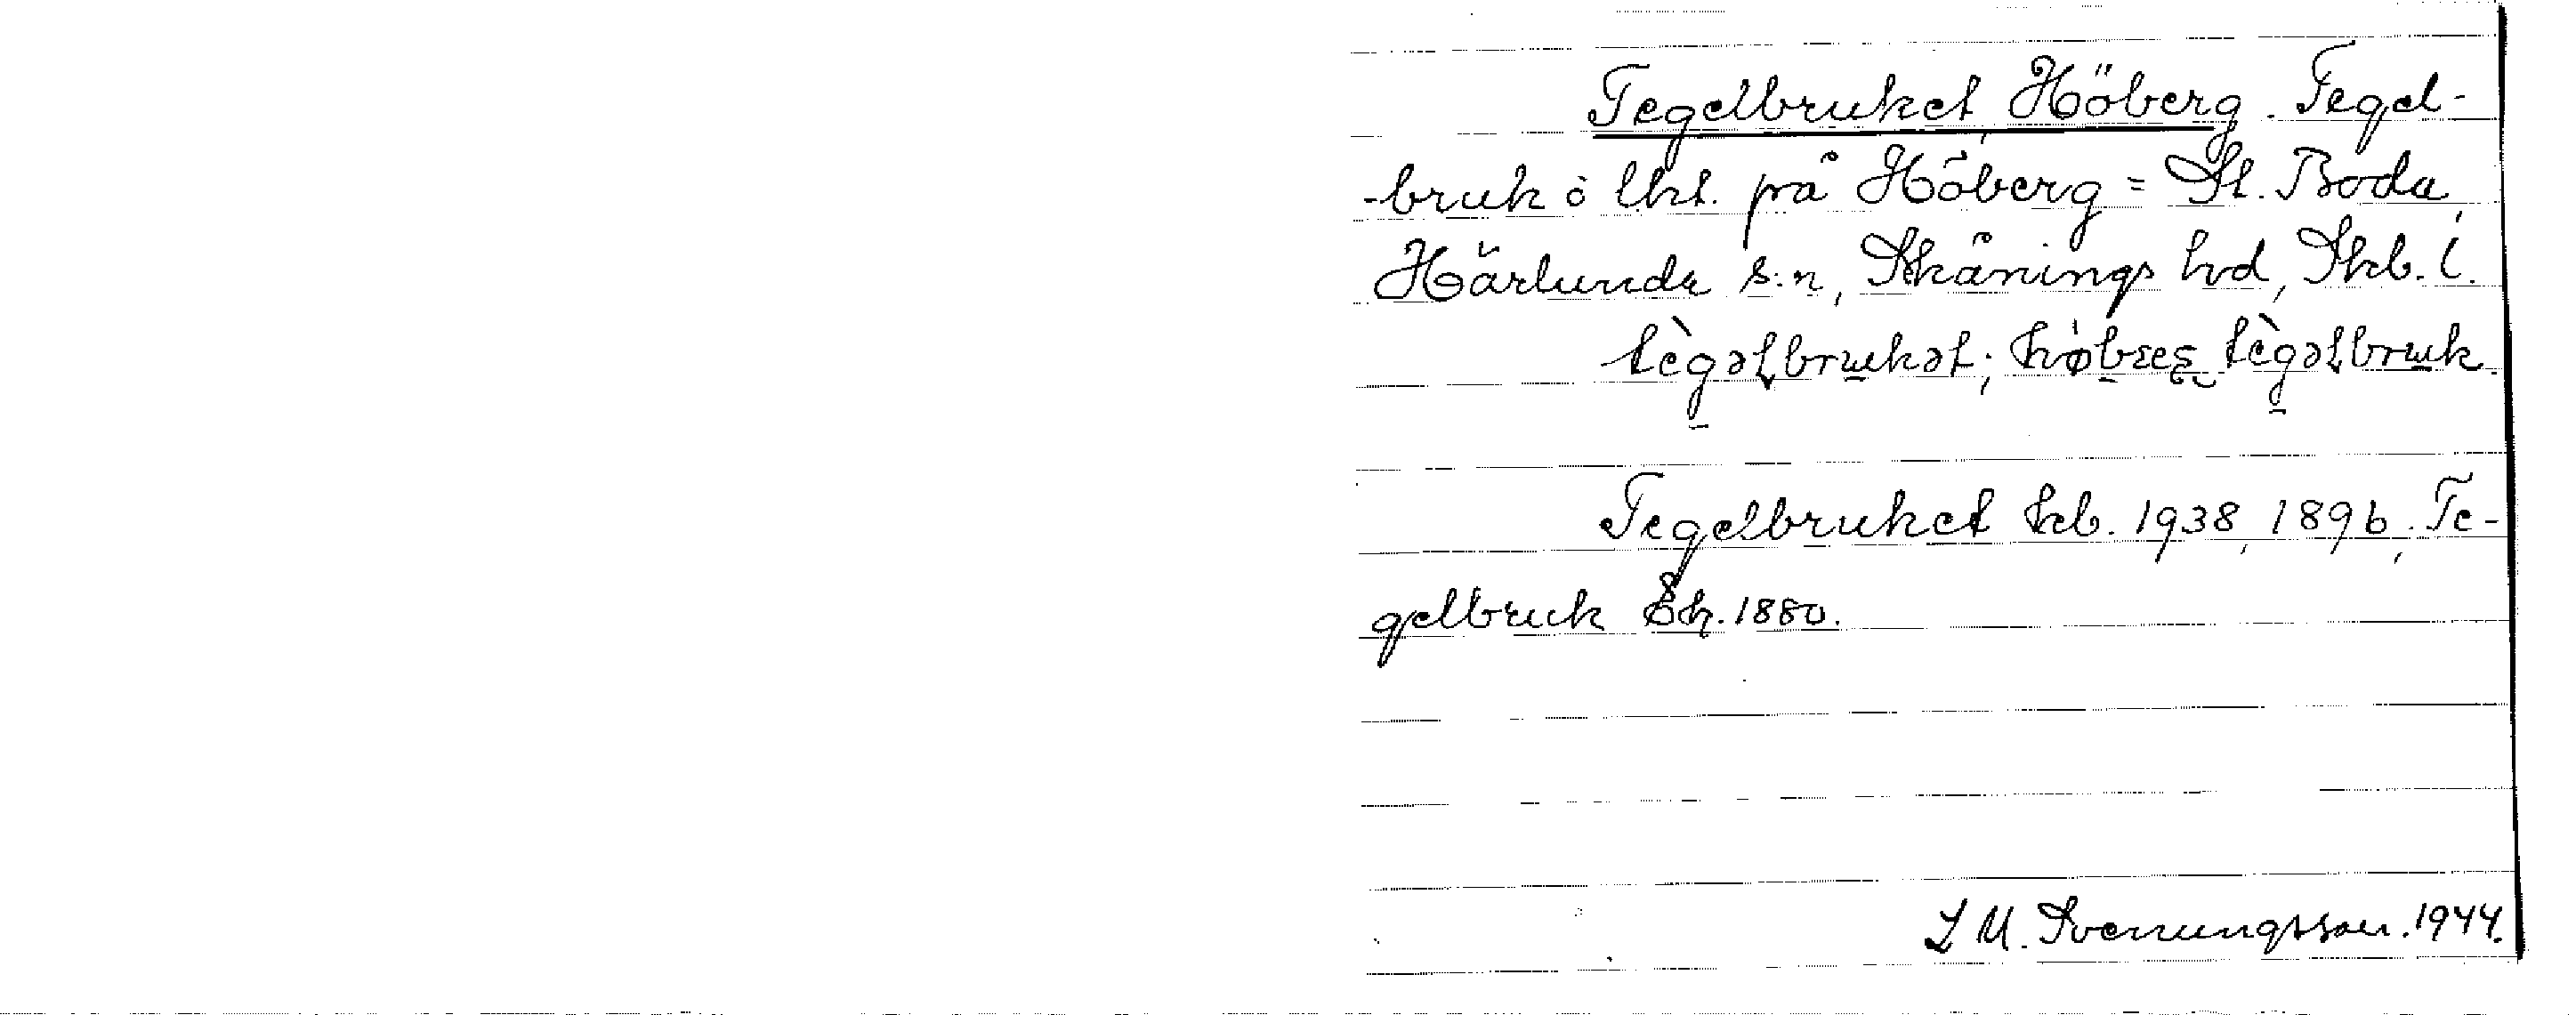 Tegelbruket, Höberg. Tegel-
-bruk o lht. på Höberg = St. Boda,
Härlunda s:n, Skånings hd, Skb. l.
tègəɫbrukət; høbærg tègəɫbruk.
Tegelbruket kb. 1938, 1896, Te-
gelbruk Ek. 1880.
L M. Svenungsson. 1944.